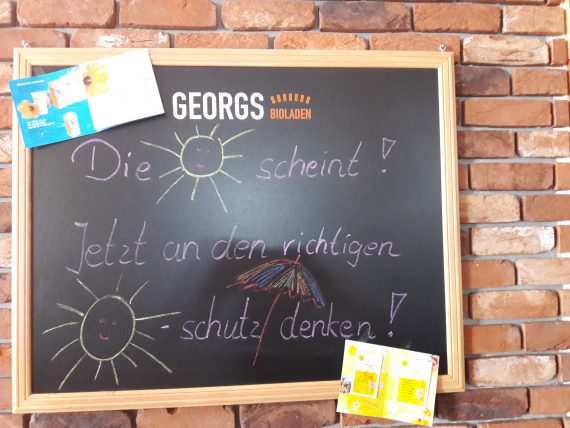 GEORGS
BIOLADEN
Die scheint!
Jetzt an den richtigen
-schutz denken!